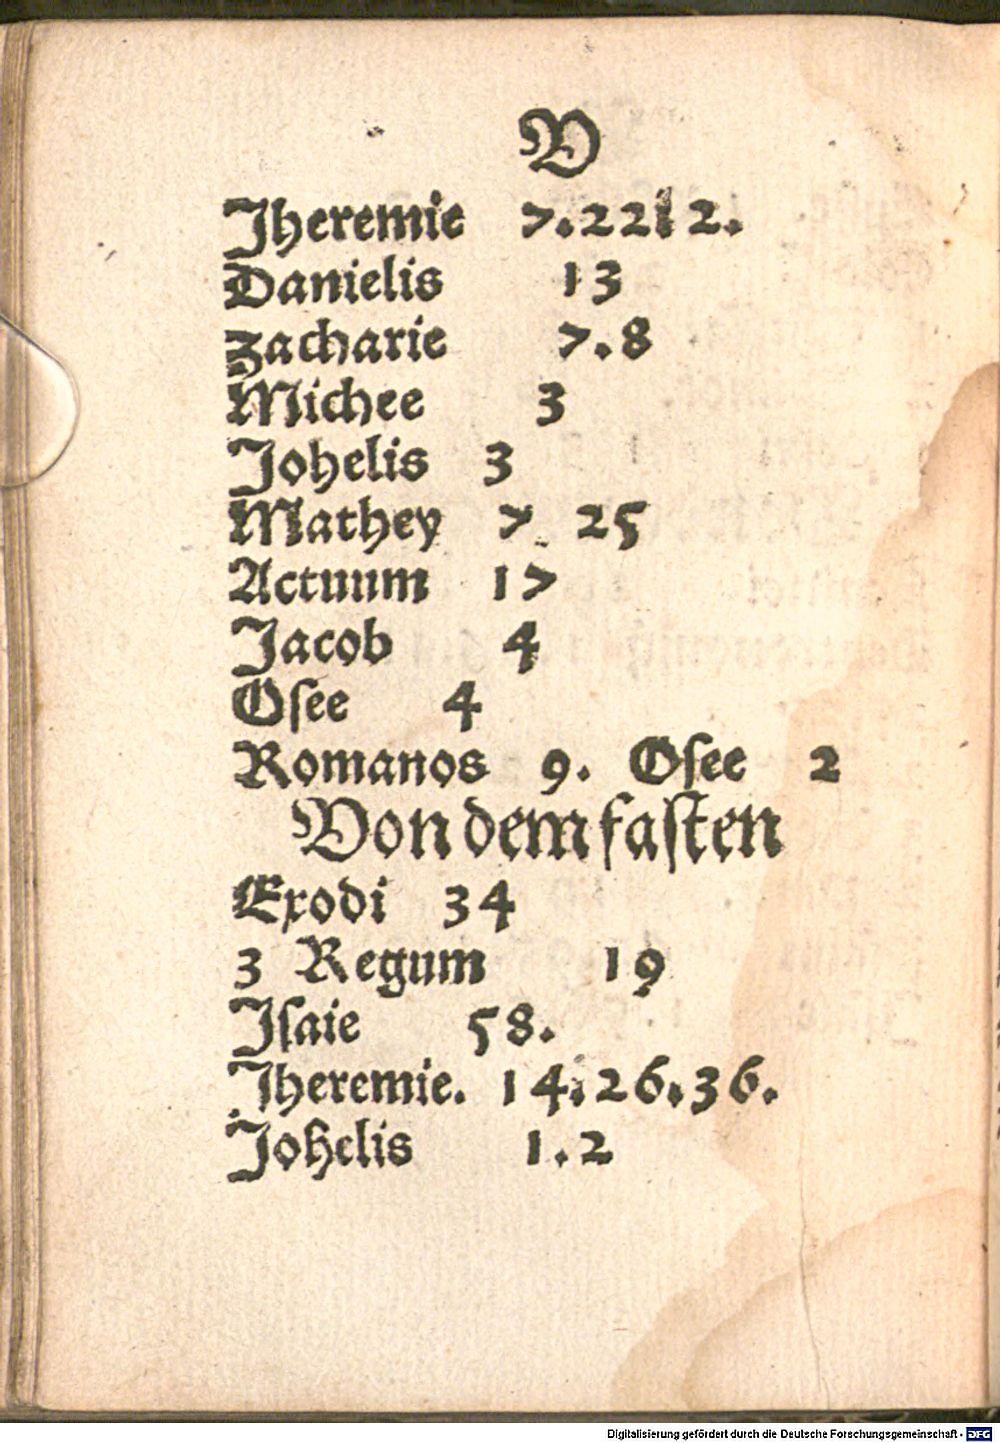 V
Jheremie 7.22 1 2.
Danielis 13
Zacharie 7.8
Michee 3
Johelis 3
Mathey 7 25
Actuum 17
Jacob 4
Osee 4
Romanos 9. Osee 2
Von dem fasten
Exodi 34
3 Regum 19
Jsaie 58.
Jheremie. 14.26.36.
Johelis 1.2
Digitalisierung gefördert durch die Deutsche Forschungsgemeinschaft - DFG